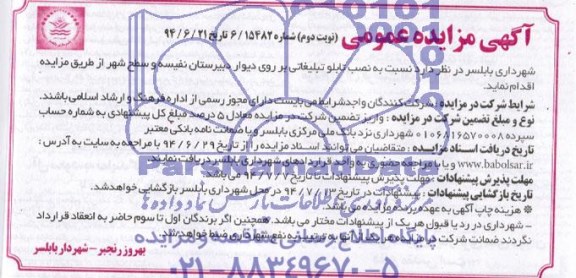 آگهی مزایده عمومی (نوبت دوم) شماره ۶/۱۵۴۸۲ تاریخ ۹۴/۶/۲۱
شهرداری بابلسر در نظر دارد نسبت به نصب تابلو تبلیغاتی بر روی دیوار دبیرستان نفیسه و سطح شهر از طریق مزایده
اقدام نماید.
شرایط شرکت در مزایده : شرکت کنندگان واجد شرایط می بایست دارای مجوز رسمی از اداره فرهنگ و ارشاد اسلامی باشند.
نوع و مبلغ تضمین شرکت در مزایده : واریز تضمین شرکت در مزایده معادل ۵ درصد مبلغ کل پیشنهادی به شماره حساب
سپرده ۰۱۰۶۸۱۶۵۷۰۰۰۸ شهرداری نزد بانک ملی مرکزی بابلسر و یا ضمانت نامه بانکی معتبر
تاریخ دریافت اسناد مزایده : متقاضیان می توانند اسناد مزایده را از تاریخ ۹۴/۶/۲۹ با مراجعه به سایت به آدرس :
www.babolsar.ir و یا با مراجعه حضوری به واحد قراردادهای شهرداری بابلسر دریافت نمایند.
مهلت پذیرش پیشنهادات : مهلت پذیرش پیشنهادات تا تاریخ ۹۴/۷/ می باشد.
تاریخ بازگشایی پیشنهادات : پیشنهادات در تاریخ ۹۴/۷/۱۳ در محل شهرداری بابلسر بازگشایی خواهد شد.
* هزینه چاپ آگهی به عهده برنده مزایده می باشد.
- شهرداری در رد یا قبول هر یک از پیشنهادات مختار می باشد. همچنین اگر برندگان اول تا سوم حاضر به انعقاد قرارداد
نگردند ضمانت شرکت در مزایده هر یک از آنها به ترتیب به نفع شهرداری ضبط خواهد شد.
بهروز رنجبر - شهردار بابلسر
پایگاه اطلاع رسانی مناقصه و مزایده
۰۲۱-۸۸۳۴۹۶۷۰-۵